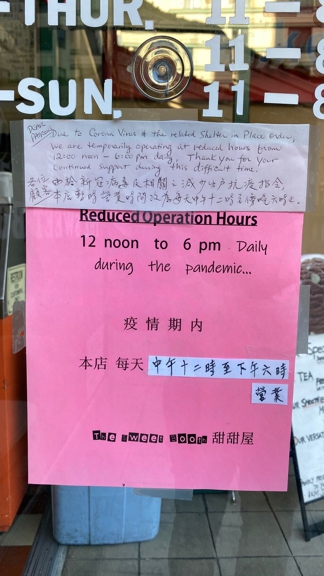 -THUR. 11-8
11-8
-SUN. 11-8
Due to Corona Virus & the related Shelter in Place order,
we are temporarily operating at reduced hours from
12:00 noon - 6:00 pm daily. Thank you for your
continued support during this difficult time.
各位 由於新冠病毒及相關之減少戶外疫指令
顧客 本店暫時營業時間改店每天中午十二時至傍晚六時止.
Reduced Operation Hours
12 noon to 6 pm Daily
during the pandemic...
疫情期內
本店 每天 中午十二時至下午六時
營業
The Sweet Booth 甜甜屋
TEA